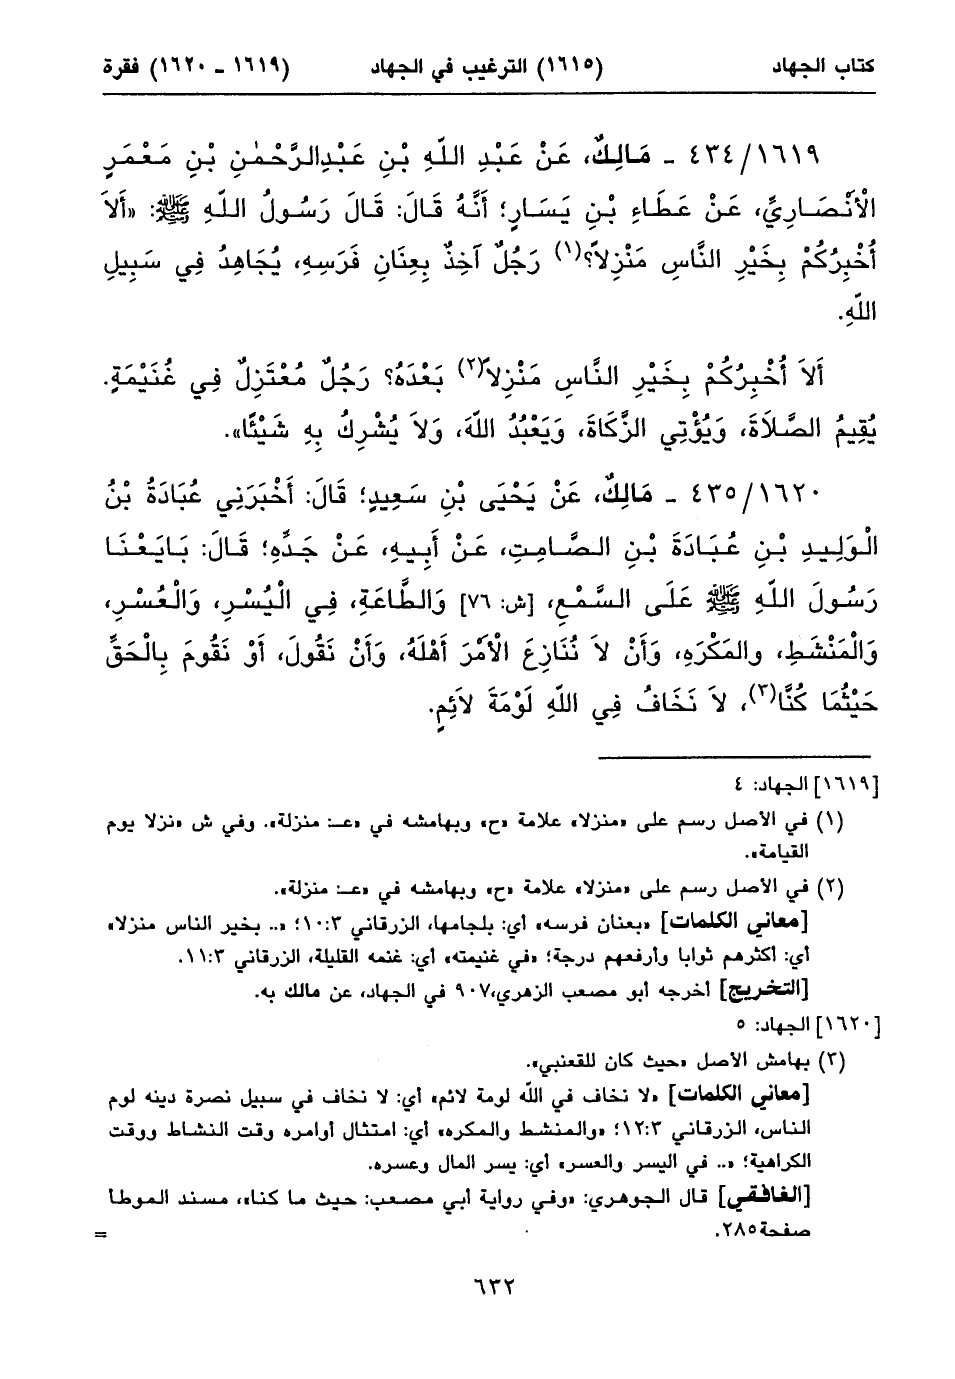 كتاب الجهاد (١٦١٥) الترغيب في الجهاد (١٦١٩ - ١٦٢٠) فقرة
٤٣٤/١٦١٩ - مَالِكٌ، عَنْ عَبْدِ اللّهِ بْنِ عَبْدِالرَّحْمٰنِ بْنِ مَعْمَرٍ
الْأَنْصَارِيِّ، عَنْ عَطَاءِ بْنِ يَسَارٍ؛ أَنَّهُ قَالَ: قَالَ رَسُولُ اللّهِ ﷺ: «أَلاَ
أُخْبِرُكُمْ بِخَيْرِ النَّاسِ مَنْزِلاً؟(١) رَجُلٌ آخِذٌ بِعِنَانِ فَرَسِهِ، يُجَاهِدُ فِي سَبِيلِ
اللّهِ.
أَلاَ أُخْبِرُكُمْ بِخَيْرِ النَّاسِ مَنْزِلاً(٢) بَعْدَهُ؟ رَجُلٌ مُعْتَزِلٌ فِي غُنَيْمَةٍ.
يُقِيمُ الصَّلاَةَ، وَيُؤْتِي الزَّكَاةَ، وَيَعْبُدُ اللّهَ، وَلاَ يُشْرِكُ بِهِ شَيْئًا».
٤٣٥/١٦٢٠ - مَالِكٌ، عَنْ يَحْيَى بْنِ سَعِيدٍ؛ قَالَ: أَخْبَرَنِي عُبَادَةُ بْنُ
الْوَلِيدِ بْنِ عُبَادَةَ بْنِ الصَّامِتِ، عَنْ أَبِيهِ، عَنْ جَدِّهِ؛ قَالَ: بَايَعْنَا
رَسُولَ اللّهِ ﷺ عَلَى السَّمْعِ، [ش: ٧٦] وَالطَّاعَةِ، فِي الْيُسْرِ، وَالْعُسْرِ،
وَالْمَنْشَطِ، والمَكْرَهِ، وَأَنْ لاَ نُنَازِعَ الْأَمْرَ أَهْلَهُ، وَأَنْ نَقُولَ، أَوْ نَقُومَ بِالْحَقِّ
حَيْثُمَا كُنَّا(٣)، لاَ نَخَافُ فِي اللّهِ لَوْمَةَ لاَئِمٍ.
[١٦١٩] الجهاد: ٤
(١) في الأصل رسم على «منزلا» علامة «ح» وبهامشه في «عـ: منزلة». وفي ش «نزلا يوم
القيامة».
(٢) في الأصل رسم على «منزلا» علامة «ح» وبهامشه في «عـ: منزلة».
[معاني الكلمات] «بعنان فرسه» أي: بلجامها، الزرقاني ٣:١٠؛ «.. بخير الناس منزلا»
أي: أكثرهم ثوابا وأرفعهم درجة؛ «في غنيمته» أي: غنمه القليلة، الزرقاني ٣:١١.
[التخريج] أخرجه أبو مصعب الزهري،٩٠٧ في الجهاد، عن مالك به.
[١٦٢٠] الجهاد: ٥
(٣) بهامش الأصل «حيث كان للقعنبي».
[معاني الكلمات] «لا نخاف في اللّه لومة لائم» أي: لا نخاف في سبيل نصرة دينه لوم
الناس، الزرقاني ٣:١٢؛ «والمنشط والمكره» أي: امتثال أوامره وقت النشاط ووقت
الكراهية؛ «.. في اليسر والعسر» أي: يسر المال وعسره.
[الغافقي] قال الجوهري: «وفي رواية أبي مصعب: حيث ما كنا»، مسند الموطا
صفحة٢٨٥.
=
٦٣٢